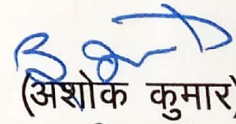 (अशोक कुमार)